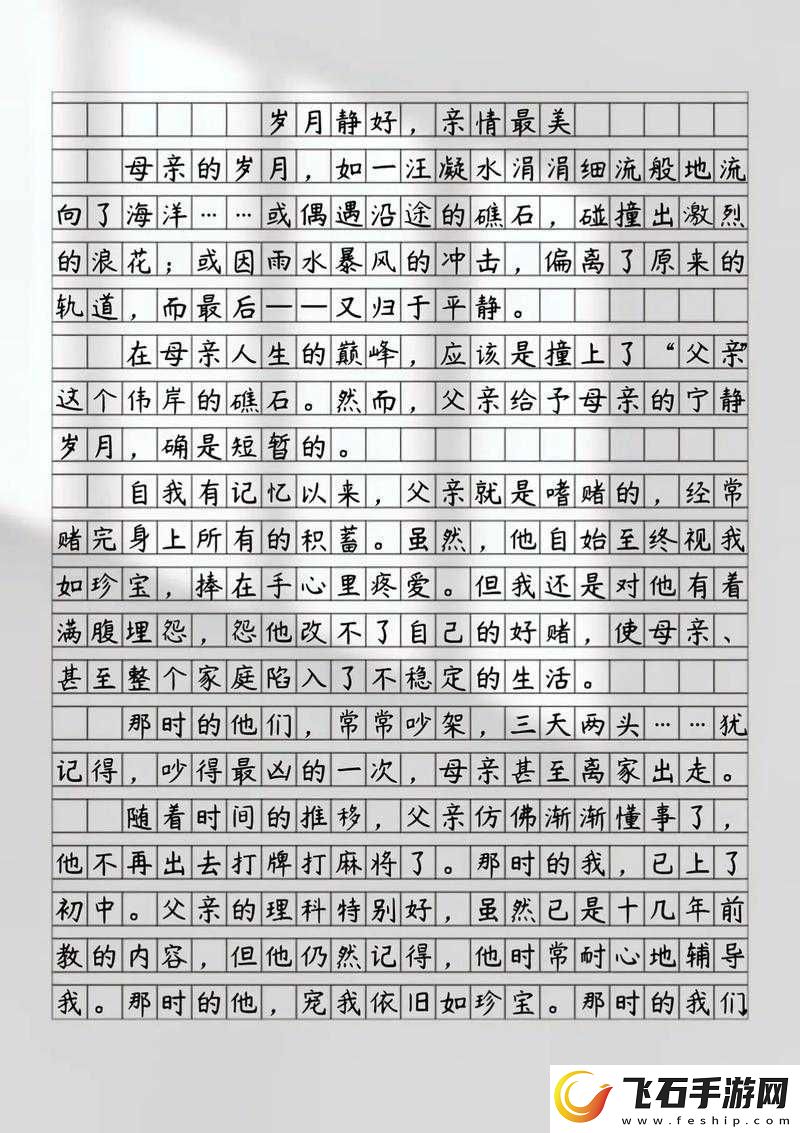 岁月静好，亲情最美
母亲的岁月，如一汪凝水涓涓细流般地流
向了海洋……或偶遇沿途的礁石，碰撞出激烈
的浪花；或因雨水暴风的冲击，偏离了原来的
轨道，而最后——又归于平静。
在母亲人生的巅峰，应该是撞上了“父亲”
这个伟岸的礁石。然而，父亲给予母亲的宁静
岁月，确是短暂的。
自我有记忆以来，父亲就是嗜赌的，经常
赌完身上所有的积蓄。虽然，他自始至终视我
如珍宝，捧在手心里疼爱。但我还是对他有着
满腹埋怨，怨他改不了自己的好赌，使母亲、
甚至整个家庭陷入了不稳定的生活。
那时的他们，常常吵架，三天两头……犹
记得，吵得最凶的一次，母亲甚至离家出走。
随着时间的推移，父亲仿佛渐渐懂事了，
他不再出去打牌打麻将了。那时的我，已上了
初中。父亲的理科特别好，虽然已是十几年前
教的内容，但他仍然记得，他时常耐心地辅导
我。那时的他，宠我依旧如珍宝。那时的我们
飞石手游网
www.feship.com